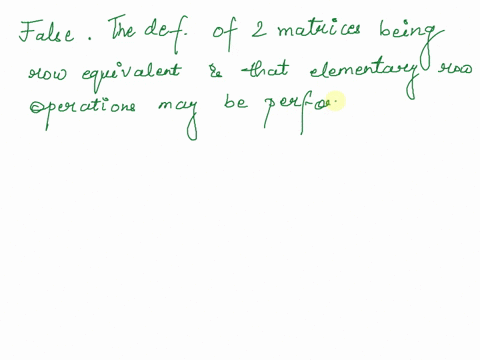 False. The def. of 2 matrices being
row equivalent is that elementary row
operations may be perfor